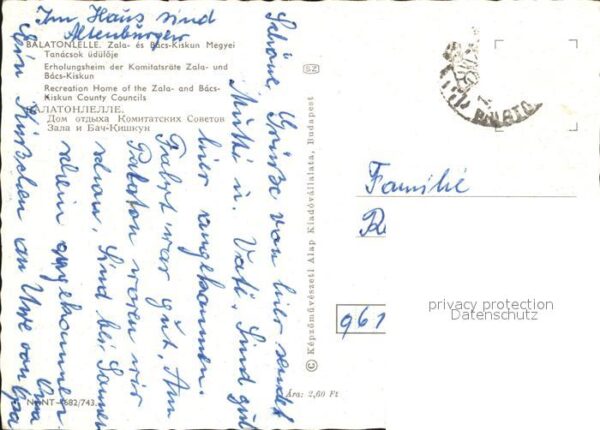 Im Haus sind
Altenburger
BALATONLELLE. Zala- és Bács-Kiskun Megyei
Tanácsok üdülője
Erholungsheim der Komitatsräte Zala- und
Bács-Kiskun
Recreation Home of the Zala- and Bács-
Kiskun County Councils
БАЛАТОНЛЕЛЛЕ.
Дом отдыха Комитатских Советов
Зала и Бач-Кишкун
Schöne Grüße von hier sendet
Mutti u. Vati. Sind gut
hier angekommen.
Fahrt war gut. Am
Balaton waren wir
schon. Sind bei Sonnen-
schein angekommen.
Ein Küßchen an Uwe von Oma
Opa
SZ
© Képzőművészeti Alap Kiadóvállalata, Budapest
Ára: 2,60 Ft
Familie
961
privacy protection
Datenschutz